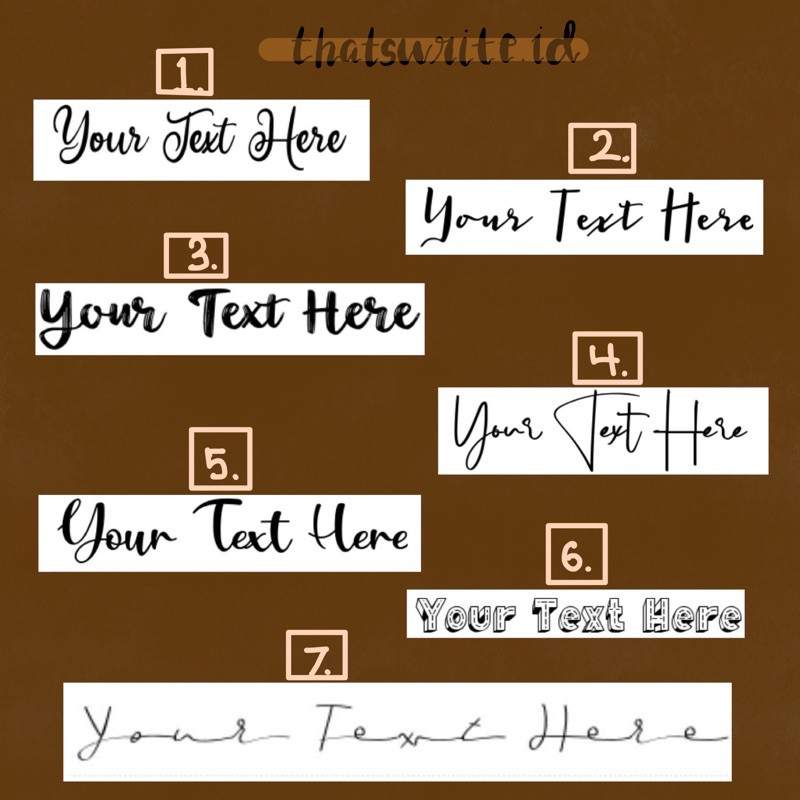 thatswrite.id
1.
Your Text Here
2.
Your Text Here
3.
Your Text Here
4.
Your Text Here
5.
Your Text Here
6.
Your Text Here
7.
Your Text Here